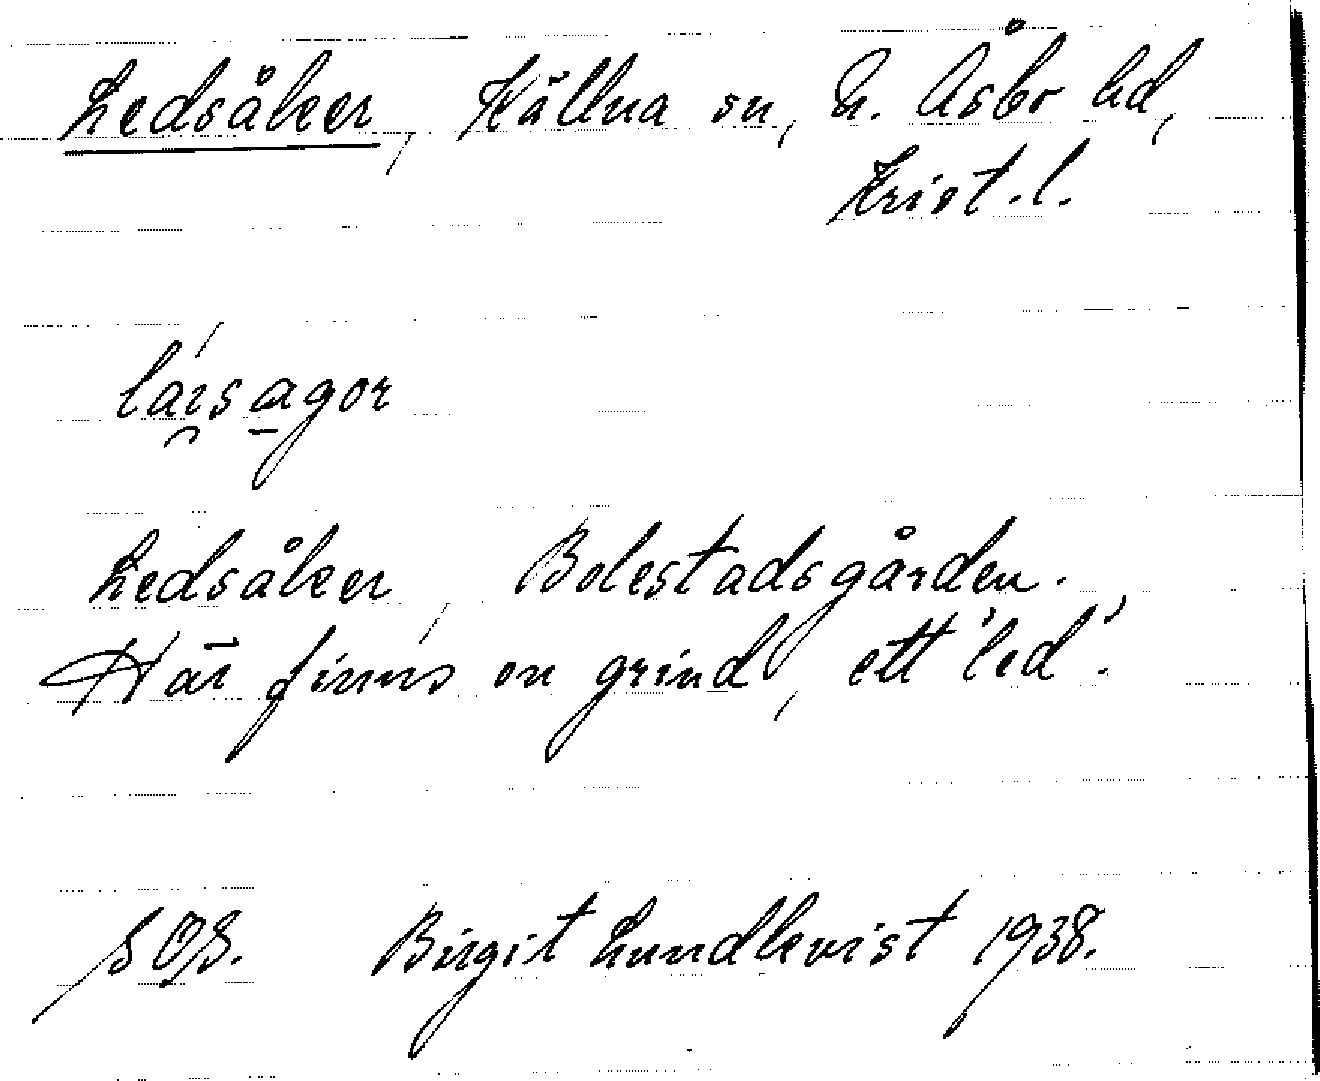 Ledsåker, Källna sn, N. Åsbo hd,
Krist. l.
laisagor
Ledsåker, Bolestadsgården.
Här finns en grind, ett 'led'.
SOS. Birgit Lundkvist 1938.